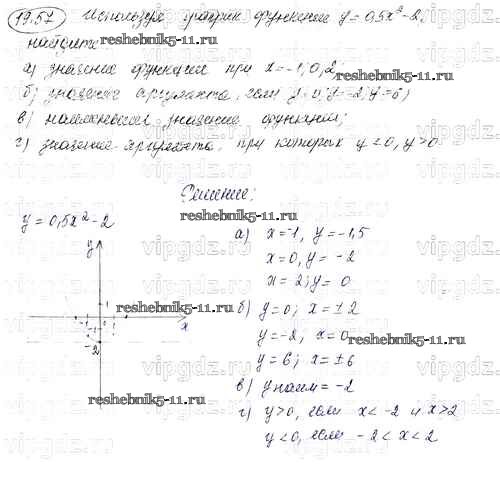 19.57 Используя график функции y=0,5x²-2,
найдите:
reshebnik5-11.ru
а) значение функции при x=-1; 0; 2
б) значение аргумента, если y=0; y=-2; y=6;
в) наименьшее значение функции;
г) значение аргумента, при которых y<0, y>0.
reshebnik5-11.ru
Решение:
reshebnik5-11.ru
y=0,5x²-2
y
x
1
1
-1
-2
reshebnik5-11.ru
а) x=-1, y=-1,5
x=0, y=-2
x=2; y=0
б) y=0; x=±2
y=-2, x=0
y=6; x=±6
в) y наим=-2
г) y>0, если x<-2 и x>2
y<0, если -2<x<2
reshebnik5-11.ru
vipgdz.ru